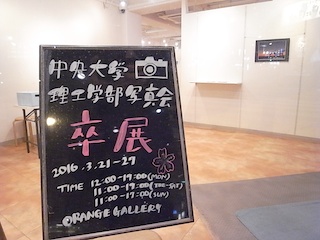 中央大学
理工学部写真会
卒展
2016.3.21-27
TIME 12:00-19:00(MON)
11:00-19:00(TUE-SAT)
11:00-17:00(SUN)
ORANGE GALLERY